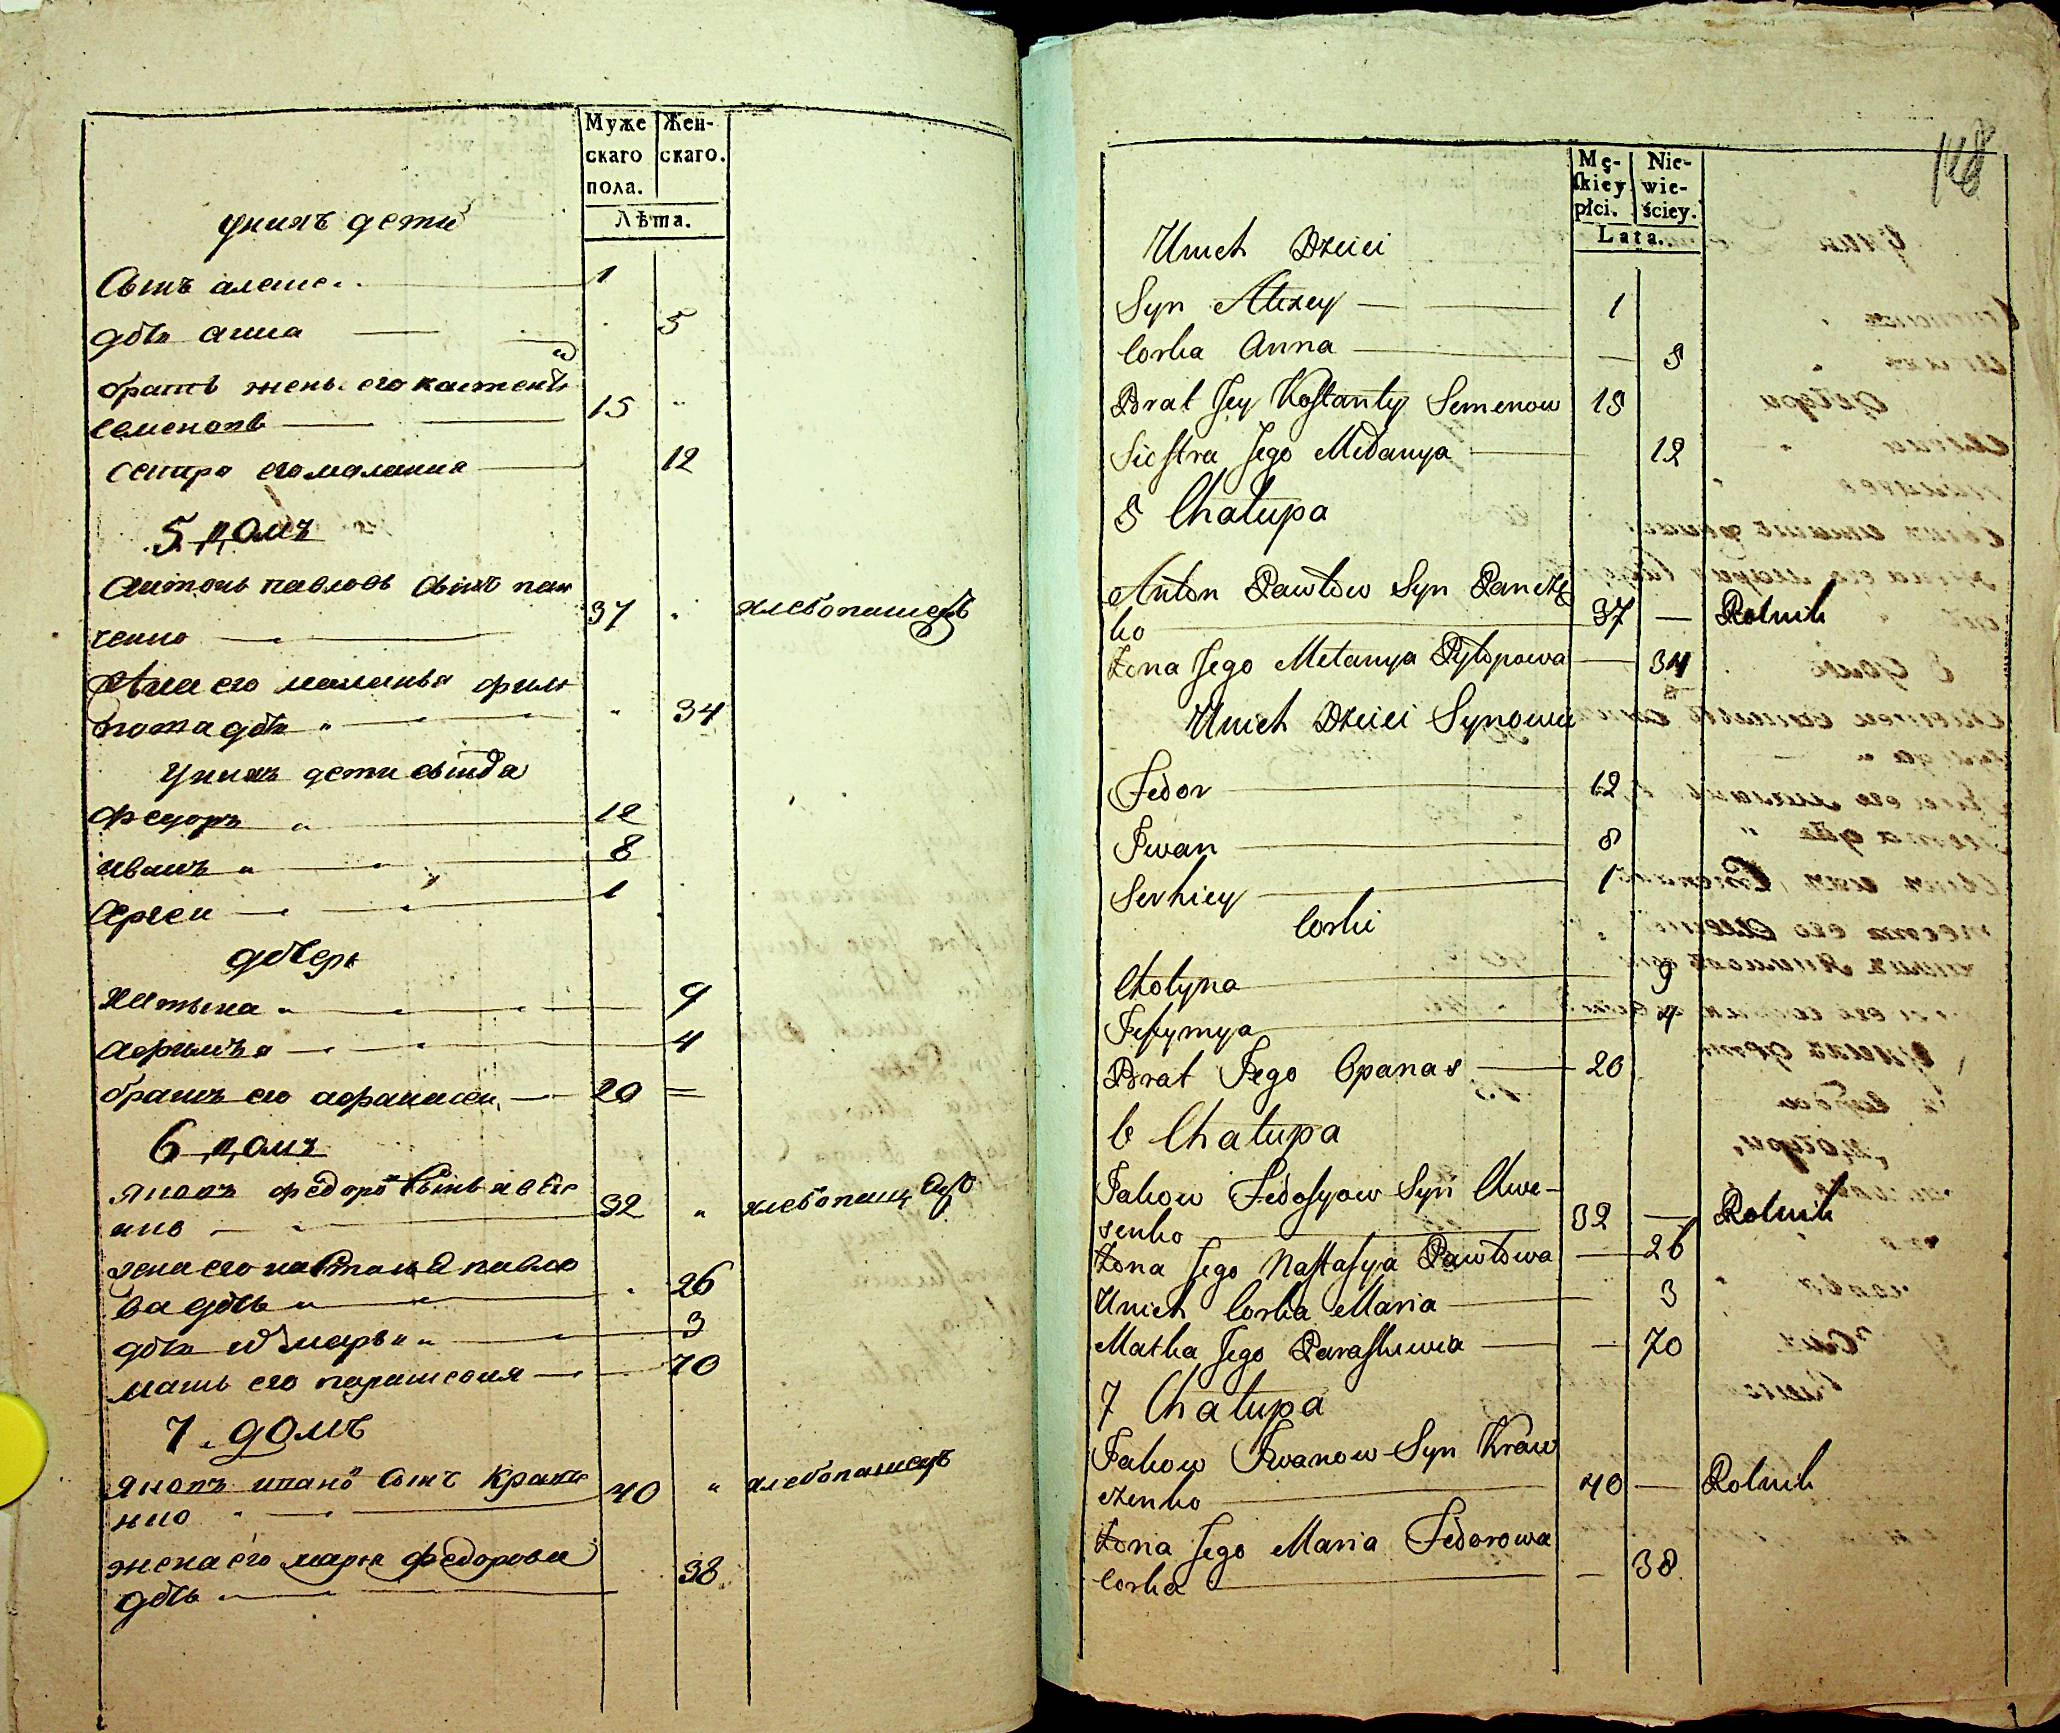 Муже Жен-
скаго скаго.
пола.
Лѣта.
унихъ дети
Сынъ алеше. 1
дбъ анна 5
братъ жены его кастенти
семеновъ 15 "
сестра его малания 12
5 домъ
Антонъ павловъ сынъ пан
ченко 37 " хлебопашецъ
жена его маланья филип
пова дбъ " 34
унихъ дети сынова
федоръ " 12
иванъ " 8
сергеи 1
дочери
хатына " 9
афимъя 4
братъ его афанасеи 20 =
6 домъ
яковъ федоровъ сынъ
32 " хлебопашецъ
жена его настасья павло
ва дбъ " 26
дбъ марья " 3
мать его парасковия 70
7 домъ
яковъ иванов сынъ Кравче
нко 40 " хлебопашецъ
жена его марья федорова
дбъ 38
148
Mę- Nie-
ſkiey wie-
płci. ściey.
Lata.
Unich Dzieci
Syn Alexey 1
Corka Anna 5
Brat Jey Koſtanty Semenow 15
Sieſtra Jego Melanya 12
5 Chałupa
Anton Pawłow Syn Pancze
ko 37 — Rolnik
Żona Jego Melanya Pylypowa 34
Unich Dzieci Synowie
Fedor 12
Iwan 8
Serhiey 1
Corki
Chotyna 9
Jefymya 4
Brat Jego Opanas 20
6 Chałupa
Jakow Fedosyow Syn Awe-
senko 32 — Rolnik
Żona Jego Naſtaſya Pawłowa 26
Unich Corka Maria 3
Matka Jego Paraſkiwia 70
7 Chałupa
Jakow Iwanow Syn Kraw
czenko 40 — Rolnik
Żona Jego Maria Fedorowa
Corka 38